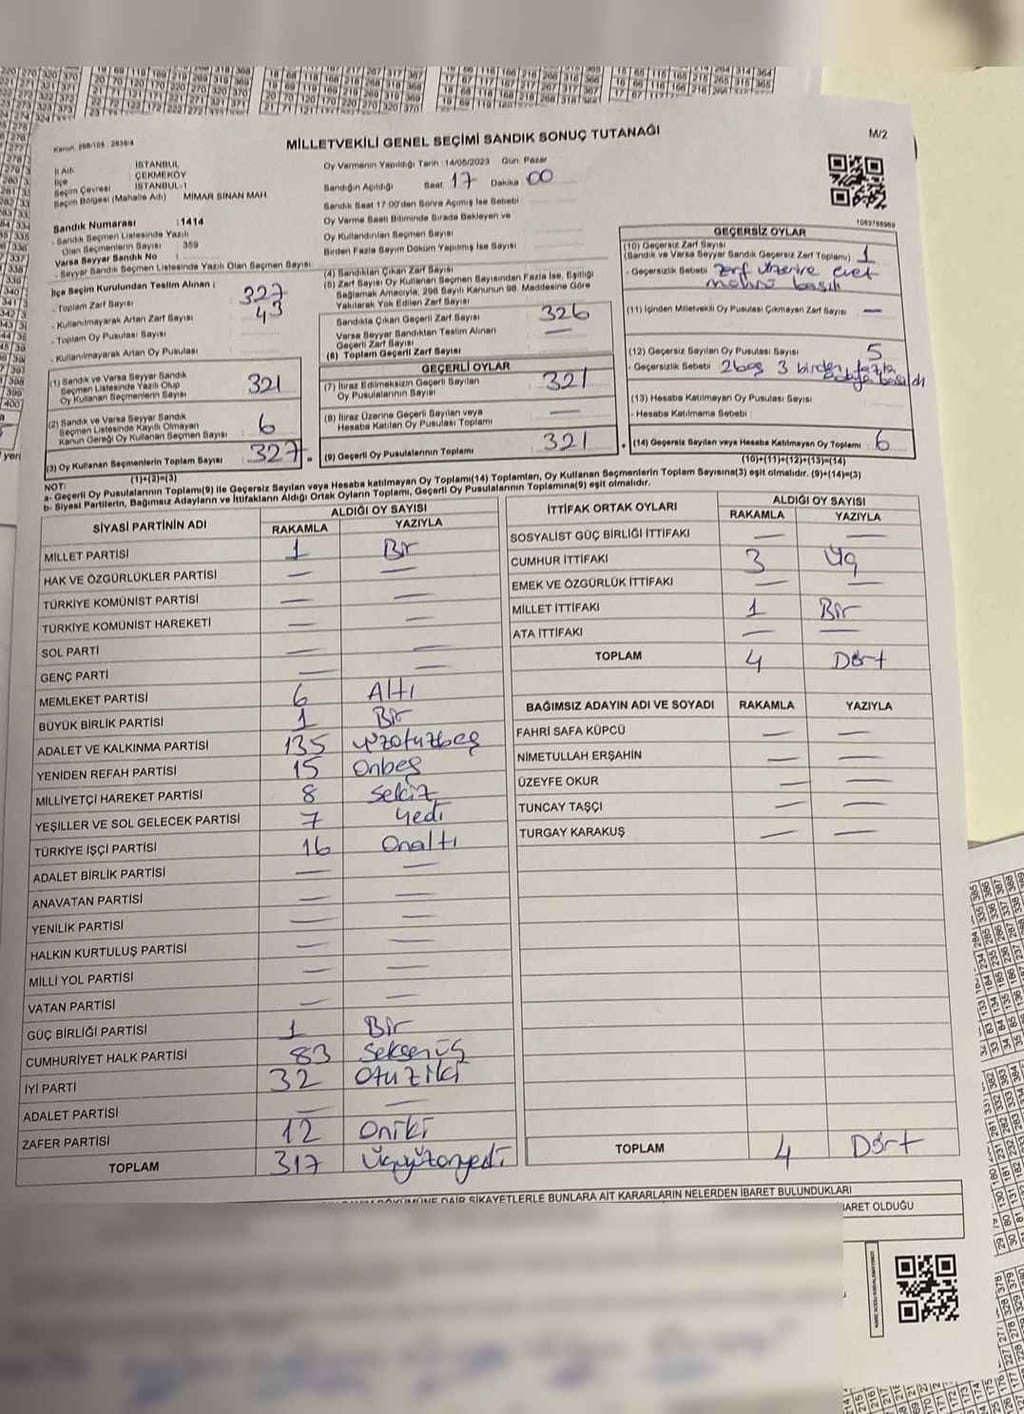 Kanun: 298/105 - 2839/4
MİLLETVEKİLİ GENEL SEÇİMİ SANDIK SONUÇ TUTANAĞI
M/2
İl Adı : İSTANBUL
İlçe : ÇEKMEKÖY
Seçim Çevresi : İSTANBUL-1
Seçim Bölgesi (Mahalle Adı) MİMAR SİNAN MAH
Sandık Numarası : 1414
- Sandık Seçmen Listesinde Yazılı
Olan Seçmenlerin Sayısı : 359
Varsa Seyyar Sandık No :
- Seyyar Sandık Seçmen Listesinde Yazılı Olan Seçmen Sayısı:
Oy Vermenin Yapıldığı Tarih : 14/05/2023 Gün: Pazar
Sandığın Açıldığı Saat 17 Dakika 00
Sandık Saat 17:00'den Sonra Açılmış İse Sebebi :
Oy Verme Saati Bitiminde Sırada Bekleyen ve
Oy Kullandırılan Seçmen Sayısı
Birden Fazla Sayım Döküm Yapılmış İse Sayısı :
1083766969
İlçe Seçim Kurulundan Teslim Alınan ;
- Toplam Zarf Sayısı 327
- Kullanılmayarak Artan Zarf Sayısı 43
- Toplam Oy Pusulası Sayısı
- Kullanılmayarak Artan Oy Pusulası
(1) Sandık ve Varsa Seyyar Sandık
Seçmen Listesinde Yazılı Olup
Oy Kullanan Seçmenlerin Sayısı 321
(2) Sandık ve Varsa Seyyar Sandık
Seçmen Listesinde Kayıtlı Olmayan
Kanun Gereği Oy Kullanan Seçmen Sayısı 6
(3) Oy Kullanan Seçmenlerin Toplam Sayısı 327
(1)+(2)=(3)
(4) Sandıktan Çıkan Zarf Sayısı
(5) Zarf Sayısı Oy Kullanan Seçmen Sayısından Fazla İse, Eşitliği
Sağlamak Amacıyla, 298 Sayılı Kanunun 98. Maddesine Göre
Yakılarak Yok Edilen Zarf Sayısı
Sandıkta Çıkan Geçerli Zarf Sayısı 326
Varsa Seyyar Sandıktan Teslim Alınan —
(6) Toplam Geçerli Zarf Sayısı
GEÇERLİ OYLAR
(7) İtiraz Edilmeksizin Geçerli Sayılan
Oy Pusulasının Sayısı 321
(8) İtiraz Üzerine Geçerli Sayılan veya
Hesaba Katılan Oy Pusulası Toplamı —
(9) Geçerli Oy Pusulalarının Toplamı 321
GEÇERSİZ OYLAR
(10) Geçersiz Zarf Sayısı
(Sandık ve Varsa Seyyar Sandık Geçersiz Zarf Toplamı) 1
- Geçersizlik Sebebi Zarf üzerine evet
mührü basılı
(11) İçinden Milletvekili Oy Pusulası Çıkmayan Zarf Sayısı —
(12) Geçersiz Sayılan Oy Pusulası Sayısı 5
- Geçersizlik Sebebi 2boş 3 birden fazla
basıldı
(13) Hesaba Katılmayan Oy Pusulası Sayısı
- Hesaba Katılmama Sebebi :
(14) Geçersiz Sayılan veya Hesaba Katılmayan Oy Toplamı 6
(10)+(11)+(12)+(13)=(14)
NOT:
a- Geçerli Oy Pusulalarının Toplamı(9) ile Geçersiz Sayılan veya Hesaba katılmayan Oy Toplamı(14) Toplamları, Oy Kullanan Seçmenlerin Toplam Sayısına(3) eşit olmalıdır. (9)+(14)=(3)
b- Siyasi Partilerin, Bağımsız Adayların ve İttifakların Aldığı Ortak Oyların Toplamı, Geçerli Oy Pusulalarının Toplamına(9) eşit olmalıdır.
SİYASİ PARTİNİN ADI ALDIĞI OY SAYISI
RAKAMLA YAZIYLA
MİLLET PARTİSİ 1 Bir
HAK VE ÖZGÜRLÜKLER PARTİSİ — —
TÜRKİYE KOMÜNİST PARTİSİ — —
TÜRKİYE KOMÜNİST HAREKETİ — —
SOL PARTİ — —
GENÇ PARTİ — —
MEMLEKET PARTİSİ 6 Altı
BÜYÜK BİRLİK PARTİSİ 1 Bir
ADALET VE KALKINMA PARTİSİ 135 yüzotuzbeş
YENİDEN REFAH PARTİSİ 15 Onbeş
MİLLİYETÇİ HAREKET PARTİSİ 8 Sekiz
YEŞİLLER VE SOL GELECEK PARTİSİ 7 Yedi
TÜRKİYE İŞÇİ PARTİSİ 16 Onaltı
ADALET BİRLİK PARTİSİ — —
ANAVATAN PARTİSİ — —
YENİLİK PARTİSİ — —
HALKIN KURTULUŞ PARTİSİ — —
MİLLİ YOL PARTİSİ — —
VATAN PARTİSİ — —
GÜÇ BİRLİĞİ PARTİSİ 1 Bir
CUMHURİYET HALK PARTİSİ 83 Seksenüç
İYİ PARTİ 32 Otuziki
ADALET PARTİSİ — —
ZAFER PARTİSİ 12 Oniki
TOPLAM 317 Üçyüzonyedi
İTTİFAK ORTAK OYLARI ALDIĞI OY SAYISI
RAKAMLA YAZIYLA
SOSYALİST GÜÇ BİRLİĞİ İTTİFAKI — —
CUMHUR İTTİFAKI 3 Üç
EMEK VE ÖZGÜRLÜK İTTİFAKI — —
MİLLET İTTİFAKI 1 Bir
ATA İTTİFAKI — —
TOPLAM 4 Dört
BAĞIMSIZ ADAYIN ADI VE SOYADI RAKAMLA YAZIYLA
FAHRİ SAFA KÜPCÜ — —
NİMETULLAH ERŞAHİN — —
ÜZEYFE OKUR — —
TUNCAY TAŞÇI — —
TURGAY KARAKUŞ — —
TOPLAM 4 Dört
DÖKÜMÜNE DAİR ŞİKAYETLERLE BUNLARA AİT KARARLARIN NELERDEN İBARET BULUNDUKLARI
İBARET OLDUĞU